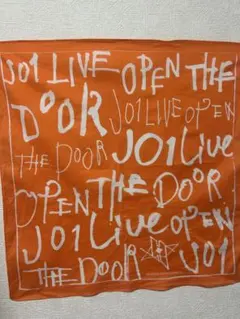 JO1 LIVE OPEN THE
DOOR JO1 LIVE OPEN
THE DOOR JO1 Live
OPEN THE DOOR
JO1 Live OPEN
THE DOOR JO1